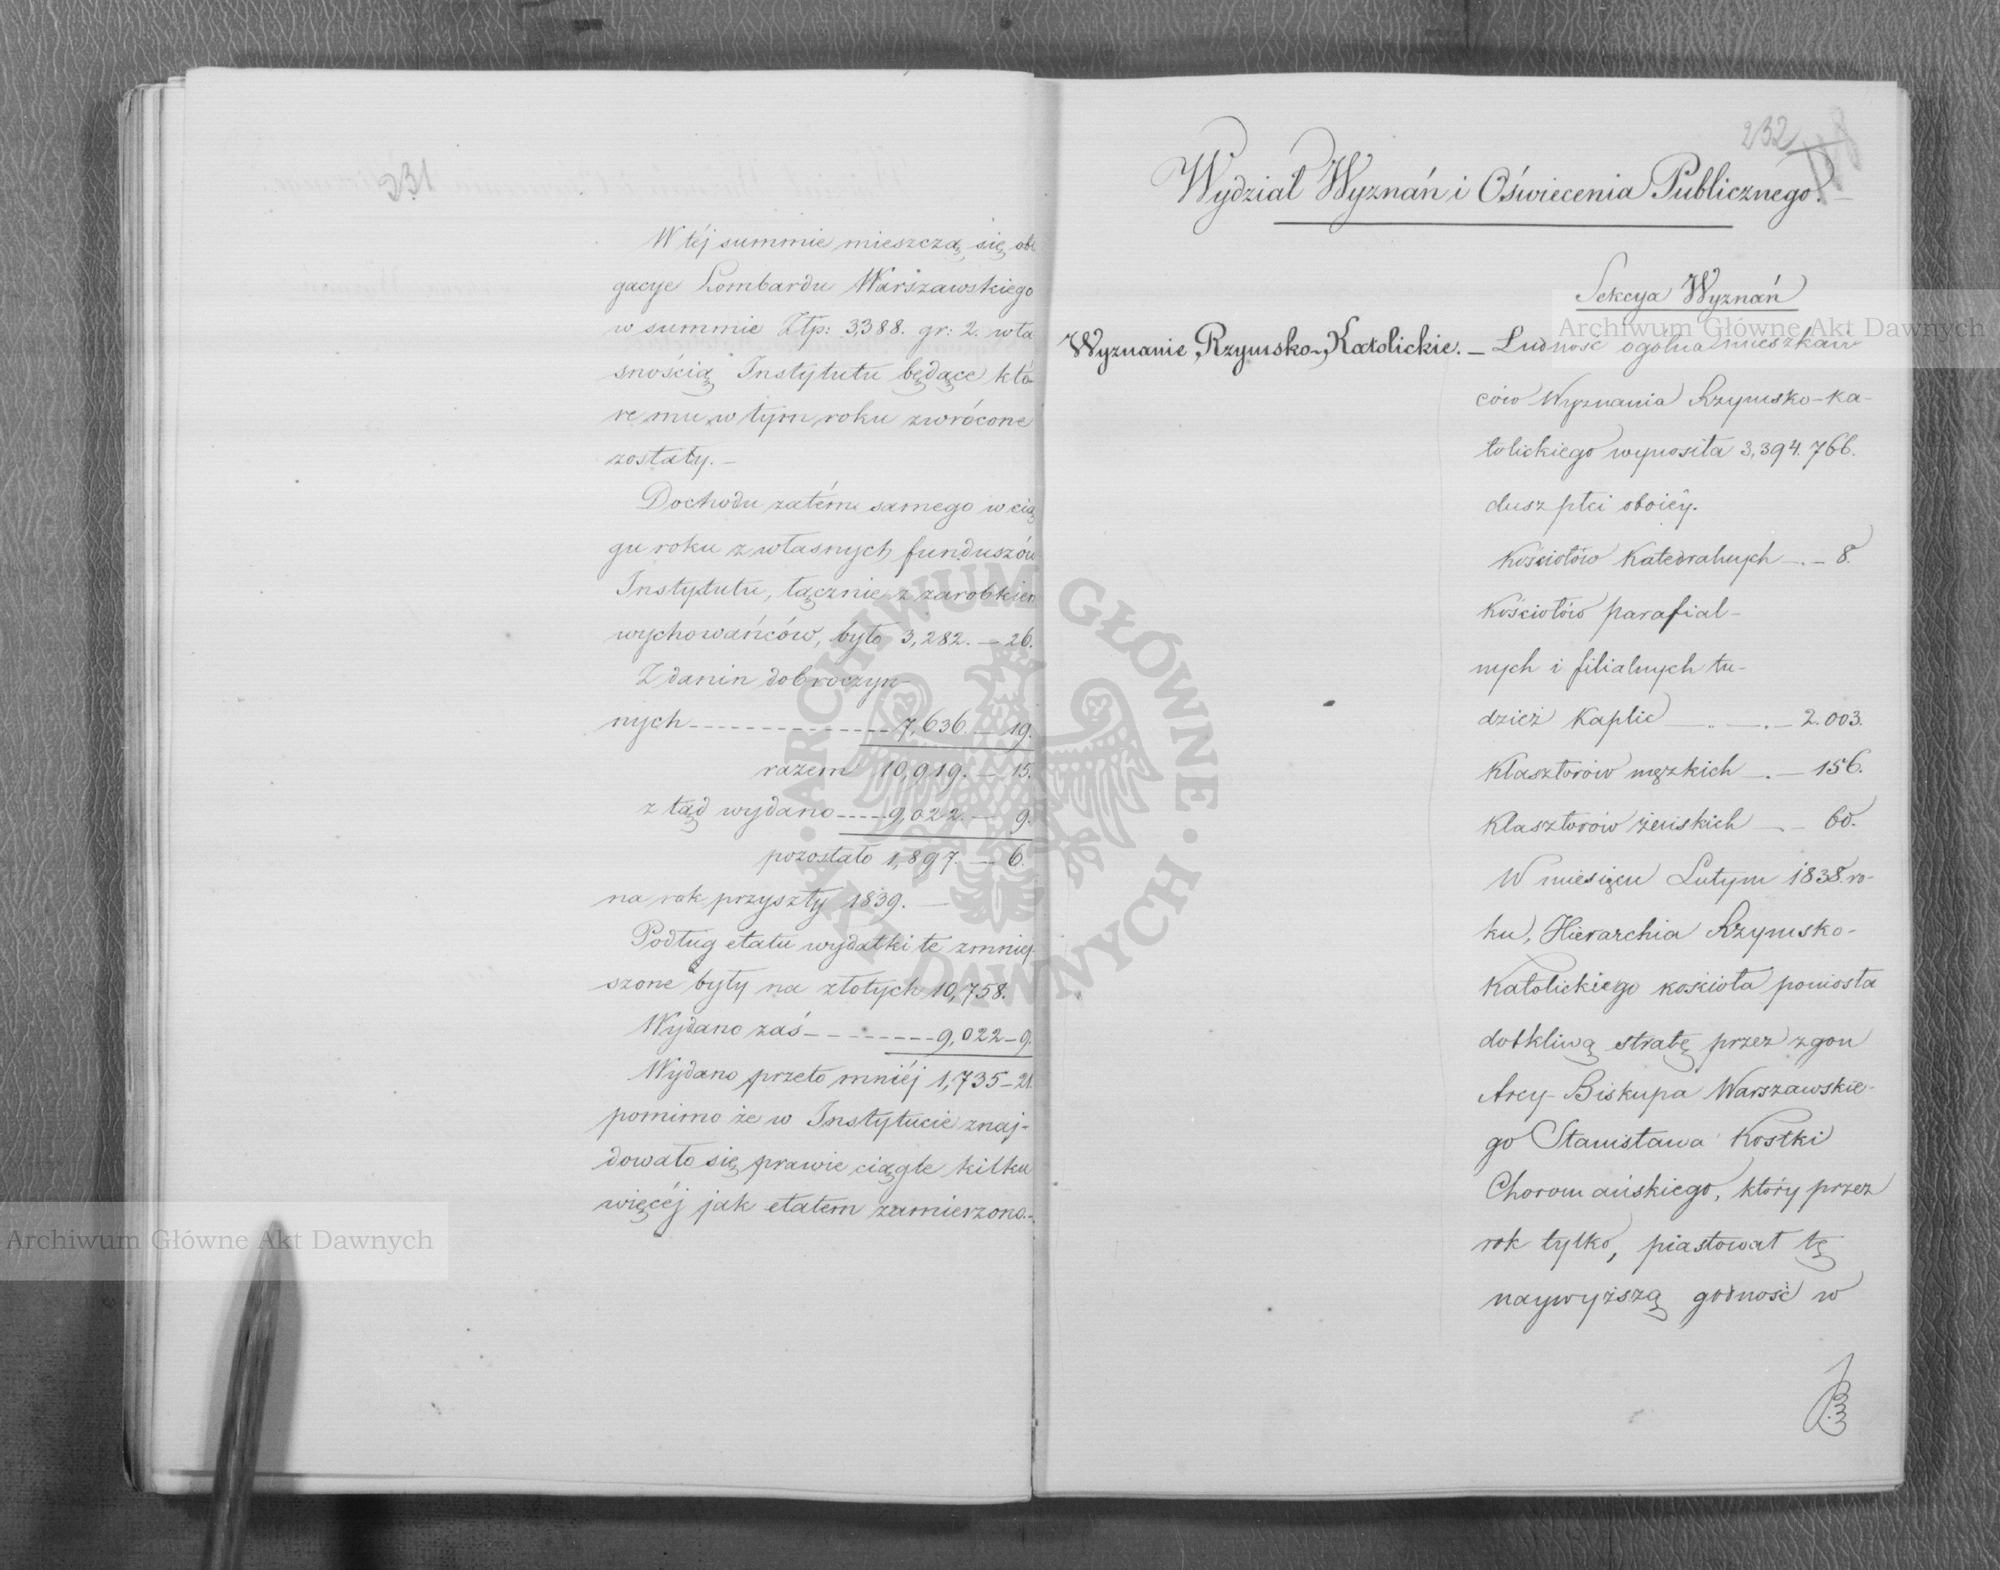 231
W téj summie mieszczą się obli
gacye Lombardu Warszawskiego
w summie Złp: 3,388. gr: 2. wła
snością Instytutu będące któ-
re mu w tym roku zwrócone
zostały. –
Dochodu zatém samego w cią
gu roku z własnych funduszów
Instytutu, łącznie z zarobkiem
wychowańców, było 3,282. – 26.
Z danin dobroczyn-
nych – – – – – – – 7,636. – 19.
razem 10,919. – 15.
z tąd wydano – – – 9,022. – 9.
pozostało 1,897. – 6.
na rok przyszły 1839. –
Podług etatu wydatki te zmniej
szone były na złotych 10,758.
Wydano zaś – – – – – 9,022 – 9.
Wydano przeto mniéj 1,735 – 21.
pomimo że w Instytucie znaj-
dowało się prawie ciągle kilku
więcéj jak etatem zamierzono. –
232
Wydział Wyznań i Oświecenia Publicznego. –
Sekcya Wyznań
Wyznanie Rzymsko-Katolickie. – Ludność ogólna mieszkań
ców Wyznania Rzymsko-ka-
tolickiego wynosiła 3,394.766.
dusz płci oboiéy.
Kościołów Katedralnych – . – 8.
Kościołów parafial-
nych i filialnych tu-
dzież Kaplic – . – . – 2.003.
Klasztorów męzkich – . – 156.
Klasztorów żeńskich – . – 60.
W miesiącu Lutym 1838. ro-
ku, Hierarchia Rzymsko-
Katolickiego kościoła poniosła
dotkliwą stratę przez zgon
Arcy-Biskupa Warszawskie-
go Stanisława Kostki
Choromańskiego, który przez
rok tylko, piastował tę
naywyższą godność w
Archiwum Główne Akt Dawnych
Archiwum Główne Akt Dawnych
ARCHIWUM GŁÓWNE AKT DAWNYCH